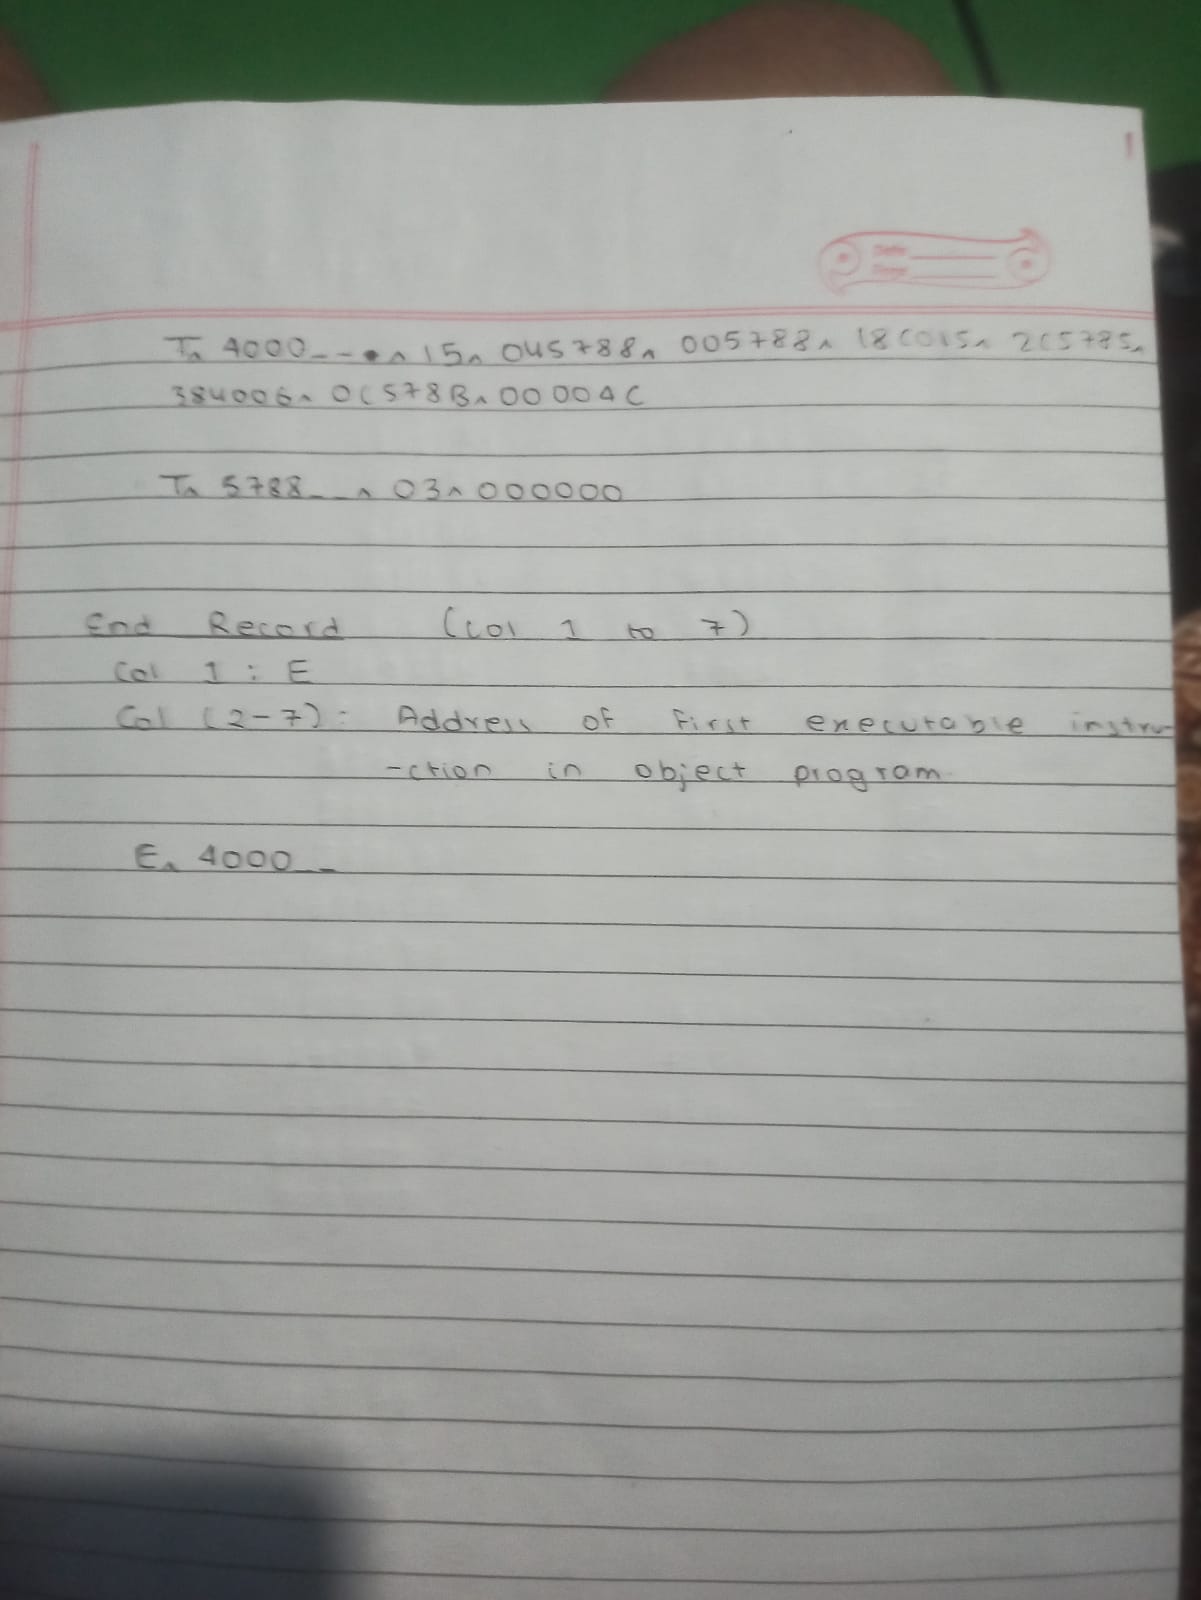 T^ 4000_ _ ^ 15^ 045788^ 005788^ 18C015^ 2C5785^
384006^ 0C578B^ 00004C
T^ 5788_ _ ^ 03^ 000000
End Record (col 1 to 7)
Col 1 : E
Col (2-7): Address of First executable instru-
-ction in object program.
E^ 4000_ _